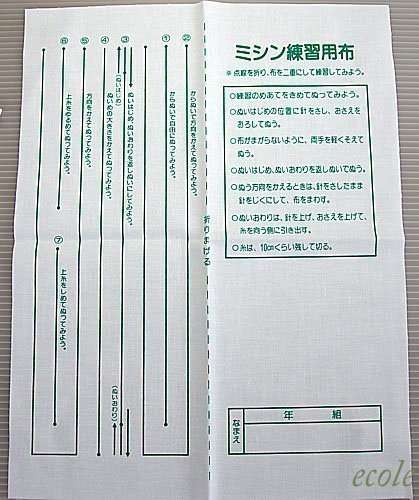 ミシン練習用布
※点線を折り、布を二重にして練習してみよう。
○練習のめあてをきめてぬってみよう。
○ぬいはじめの位置に針をさし、おさえを
おろしてぬう。
○布がまがらないように、両手を軽くそえて
ぬう。
○ぬいはじめ、ぬいおわりを返しぬいでぬう。
○ぬう方向をかえるときは、針をさしたまま
針をじくにして、布をまわす。
○ぬいおわりは、針を上げ、おさえを上げて、
糸を向う側に引き出す。
○糸は、10cmくらい残して切る。
年 組
なまえ
折りまげる
②
からぬいで方向をかえてぬってみよう。
①
からぬいで自由にぬってみよう。
③
ぬいはじめ、ぬいおわりを返しぬいにしてみよう。
(ぬいはじめ)
(ぬいおわり)
④
ぬいめの大きさをかえてぬってみよう。
⑤
方向をかえてぬってみよう。
⑥
上糸をゆるめてぬってみよう。
⑦
上糸をしめてぬってみよう。
ecole